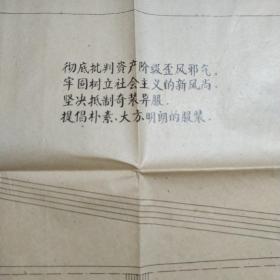 彻底批判资产阶级歪风邪气，
牢固树立社会主义的新风尚。
坚决抵制奇装异服．
提倡朴素、大方明朗的服装．